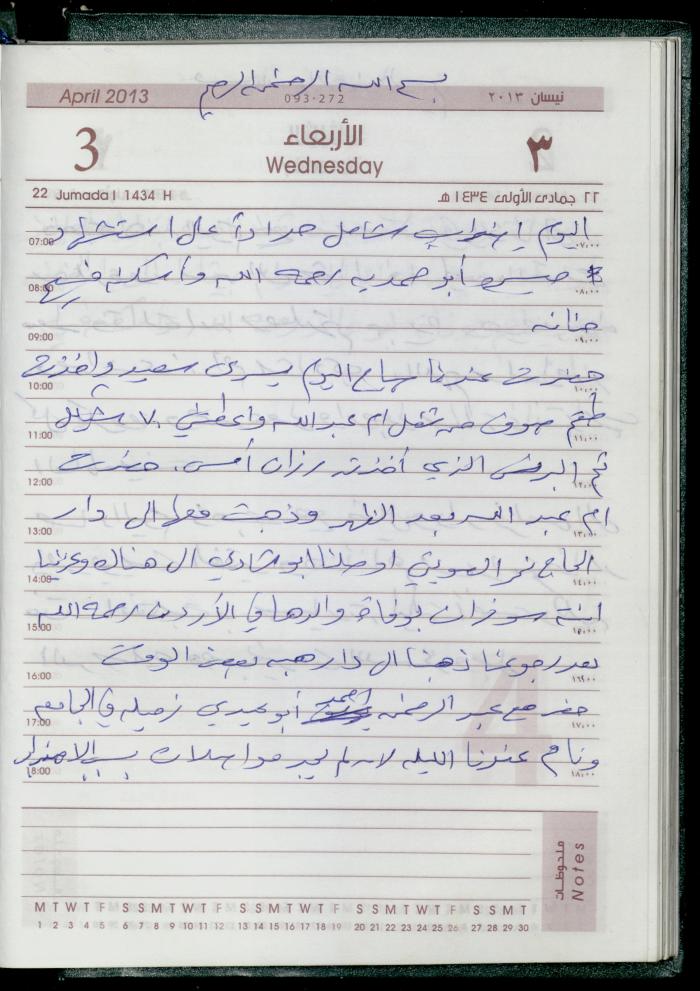 بسم الله الرحمن الرحيم
April 2013
093-272
نيسان ٢٠١٣
3
الأربعاء
Wednesday
٣
22 Jumada I 1434 H
٢٢ جمادى الأولى ١٤٣٤ هـ
اليوم إضراب شامل حداداً على استشهاد
07:00 ٠٧:٠٠
ميسرة أبو حمديه رحمه الله وأسكنه فسيح
08:00 ٠٨:٠٠
جنانه
09:00 ٠٩:٠٠
حضرت عندنا صباح اليوم يسرى سعيد واخذت
10:00 ١٠:٠٠
طقم صوف من شغل ام عبدالله واعطتني ٧٠ شيكل
11:00 ١١:٠٠
ثم البرنس الذي أخذته رزان أمس. حضرت
12:00 ١٢:٠٠
ام عبد الله بعد الظهر وذهبت معها الى دار
13:00 ١٣:٠٠
الحاج نمر اوصلنا ابو شادي الى هناك وعزينا
14:00 ١٤:٠٠
ابنته بوفاة والدها في الأردن رحمه الله
15:00 ١٥:٠٠
بعد رجوعنا ذهبنا الى دار هبه بعض الوقت
16:00 ١٦:٠٠
حضر مع عبد الرحمن احمد أبو عيدي زميله في الجامعه
17:00 ١٧:٠٠
ونام عندنا الليله لانه لم يجد مواصلات بسبب الاضراب
18:00 ١٨:٠٠
ملحوظات
Notes
M T W T F S S M T W T F S S M T W T F S S M T W T F S S M T
1 2 3 4 5 6 7 8 9 10 11 12 13 14 15 16 17 18 19 20 21 22 23 24 25 26 27 28 29 30